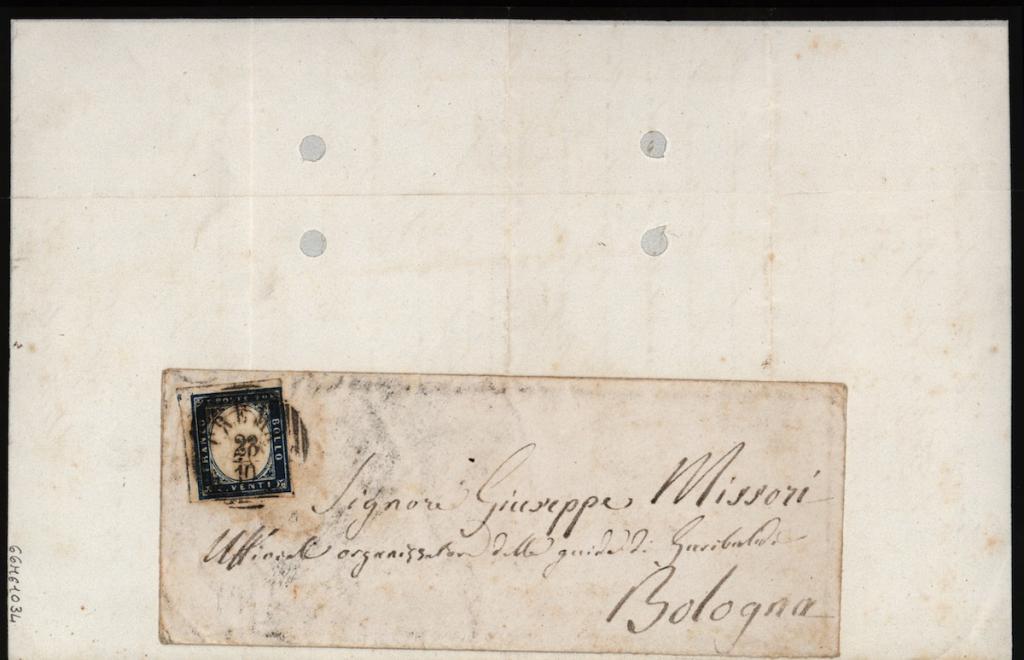 FRANCO
BOLLO
C. VENTI
22
10
Signore Giuseppe Missori
Uffiziale organizzatore delle guide di Garibaldi
Bologna
66461034